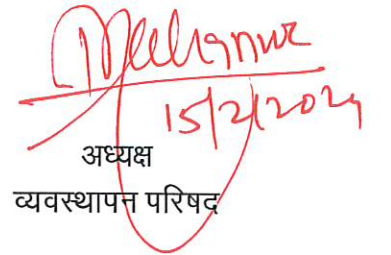 15/2/2024
अध्यक्ष
व्यवस्थापन परिषद